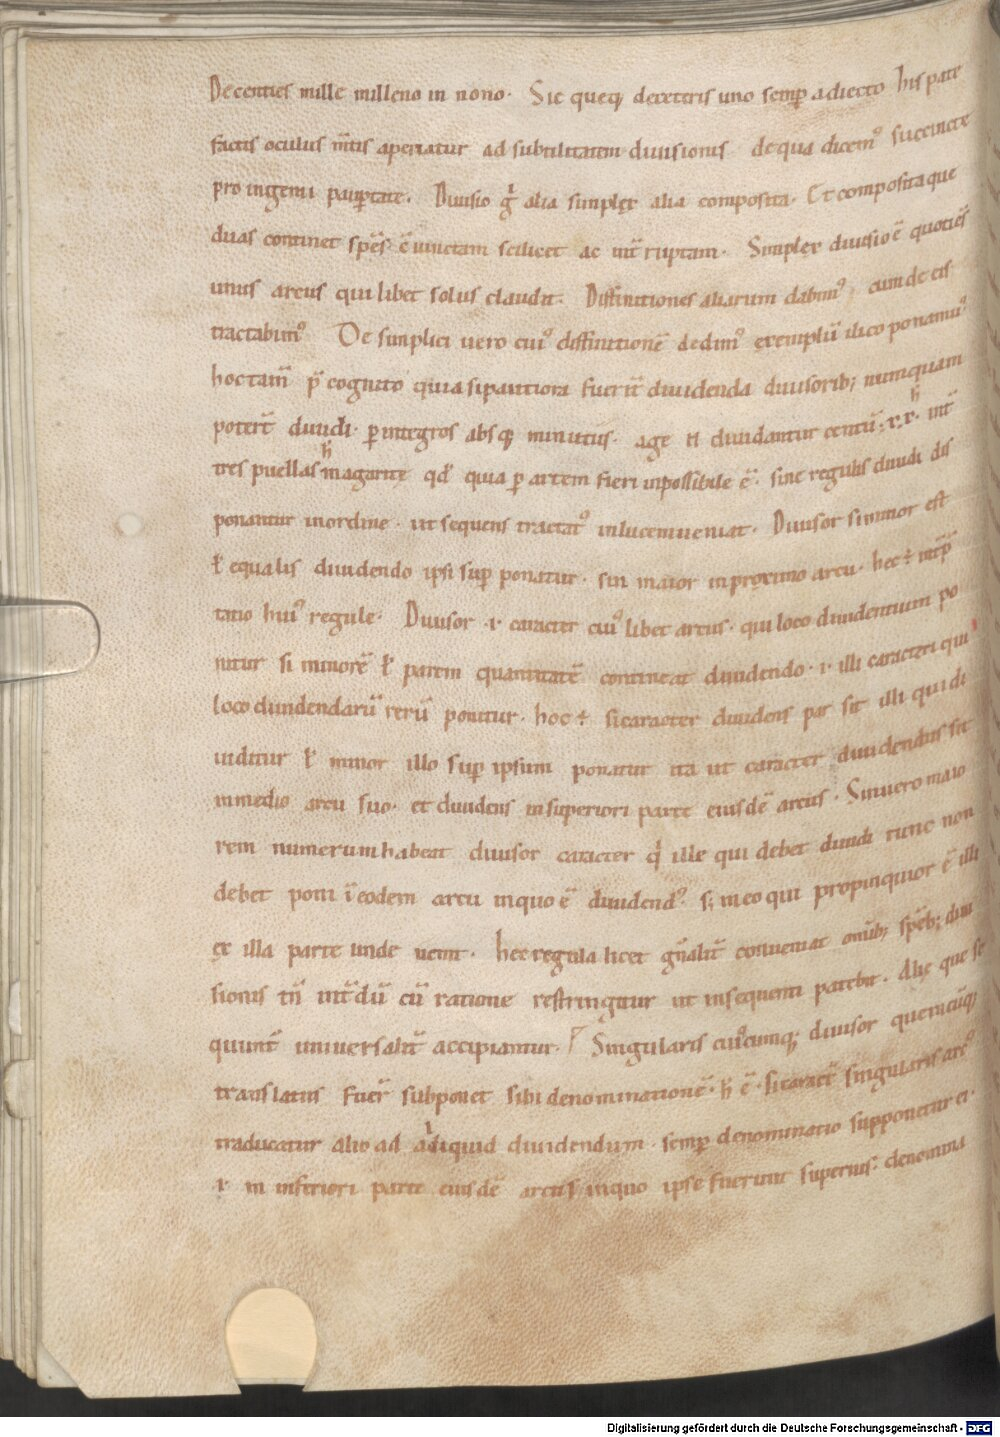 Decenties mille milleno in nono. Sic queq; deceteris uno semp̄ adiecto his pate
factis oculus m̄tis aperiatur ad subtilitatem diuisionis de qua dicem⁹ succincte
pro ingenii paup̄tate. Diuisio g̊ alia simplex alia composita. Et composita que
duas continet sp̄es. ē uinctam scilicet ac int̄ruptam. Simplex diuisio ē quotiēs
unus arcus qui libet solus claudit. Diffinitiones aliarum dabim⁹, cum de eis
tractabim⁹ De simplici uero cui⁹ diffinitionē dedim⁹ exemplū ilico ponamu⁹
hoc tam̄ p̄cognito quia si pautiora fuerīt diuidenda diuisorib; numquam
potert̄ diuidi. p̄ integros absq; minutiis. age n̄ diuidantur centū
tres puellas magarite qd̄ quia p̄ artem fieri inpossibile ē. sine regulis diuidi dis
ponantur inordine. ut sequens tractat⁹ in lucem ueniat. Diuisor si minor est
ł equalis diuidendo ipsi sup̄ ponatur. sin maior inproximo arcu. hec ÷ int̄p̄
tatio hui⁹ regule. Diuisor .i. caracter cui⁹ libet arcus. qui loco diuidentium po
nitur si minorē ł parem quantitatē contineat diuidendo .i. illi caracteri qui
loco diuidendarū rerū ponitur. hoc ÷ si caracter diuidens par sit illi qui di
uiditur ł minor illo sup̄ ipsum ponatur ita ut caracter diuidendus sit
inmedio arcu suo. et diuidens in superiori parte eiusdē arcus. Sin uero maio
rem numerum habeat diuisor caracter q̄ ille qui debet diuidi tunc non
debet poni ī eodem arcu in quo ē diuidend⁹. s; in eo qui propinquior ē illi
ex illa parte unde uenit. hec regula licet gn̄alit̄ conueniat omīb; sp̄eb; diui
sionis tn̄ int̄dū cū ratione restringitur ut insequenti patebit. Alie que se
quunt̄ uniuersalit̄ accipiantur. Singularis cui⁹cumq; diuisor quemcūq;
translatus fuer̄ subponet sibi denominationē. h̄ ē. si caract̄ singularis arc⁹
traducatur alio ad aliquid diuidendum. semp̄ denominatio supponetur ei.
.i. in inferiori parte eiusdē arcus in quo ipse fuerunt superius. denomina